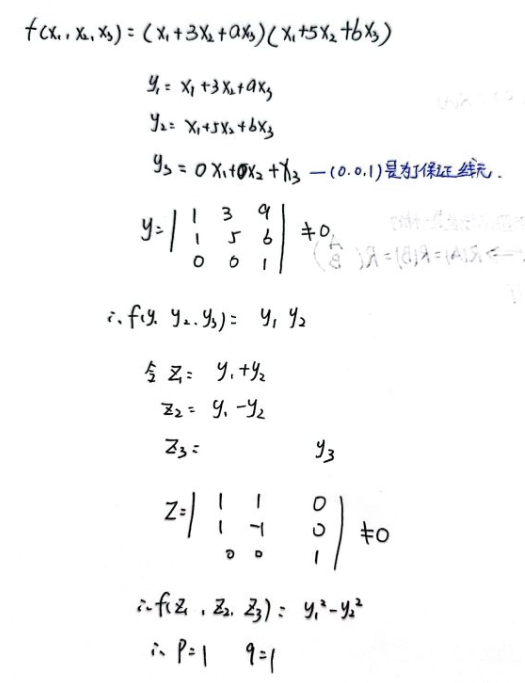 f(x₁, x₂, x₃) = (x₁+3x₂+ax₃)(x₁+5x₂+bx₃)
y₁ = x₁+3x₂+ax₃
y₂ = x₁+5x₂+bx₃
y₃ = 0x₁+0x₂+x₃ —(0.0.1)是为了保证线无.
y = | 1 3 a |
| 1 5 b | ≠0
| 0 0 1 |
∴ f(y₁ y₂. y₃) = y₁ y₂
令 z₁ = y₁+y₂
z₂ = y₁-y₂
z₃ = y₃
Z = | 1 1 0 |
| 1 -1 0 | ≠0
| 0 0 1 |
∴ f(z₁, z₂, z₃) = y₁²-y₂²
∴ p=1 q=1